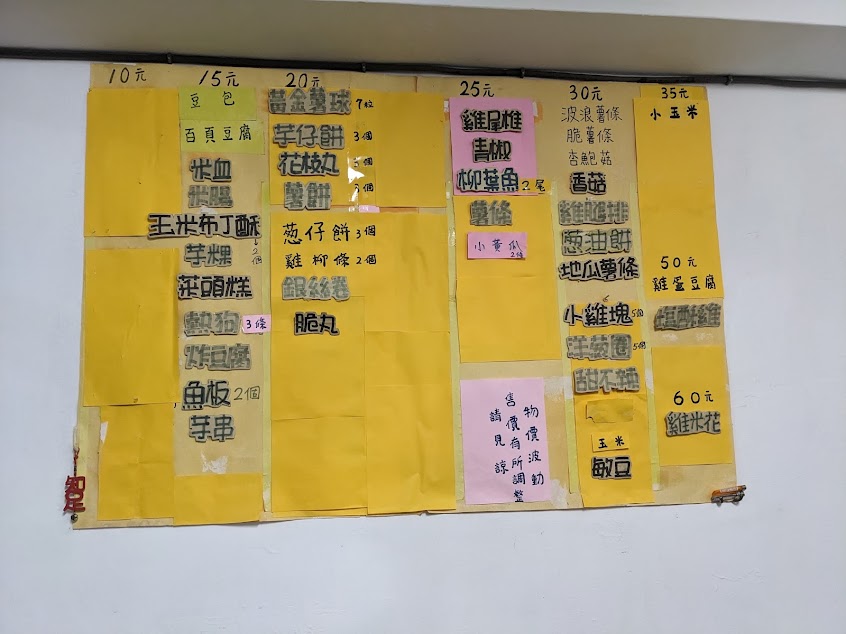 10元
15元
豆包
百頁豆腐
米血
米腸
玉米布丁酥
2個
芋粿
菜頭粿
熱狗 3條
炸豆腐
魚板 2個
芋串
20元
黃金薯球 7粒
芋仔餅 3個
花枝丸 3個
薯餅 3個
葱仔餅 3個
雞柳條 2個
銀絲卷
脆丸
25元
雞尾椎
青椒
柳葉魚 2尾
薯條
小黃瓜
2條
物價波動
售價有所調整
請見諒
30元
波浪薯條
脆薯條
杏鮑菇
香菇
雞腿排
葱油餅
地瓜薯條
小雞塊 5個
洋葱圈 5個
甜不辣
玉米
敏豆
35元
小玉米
50元
雞蛋豆腐
塩酥雞
60元
雞米花
知足